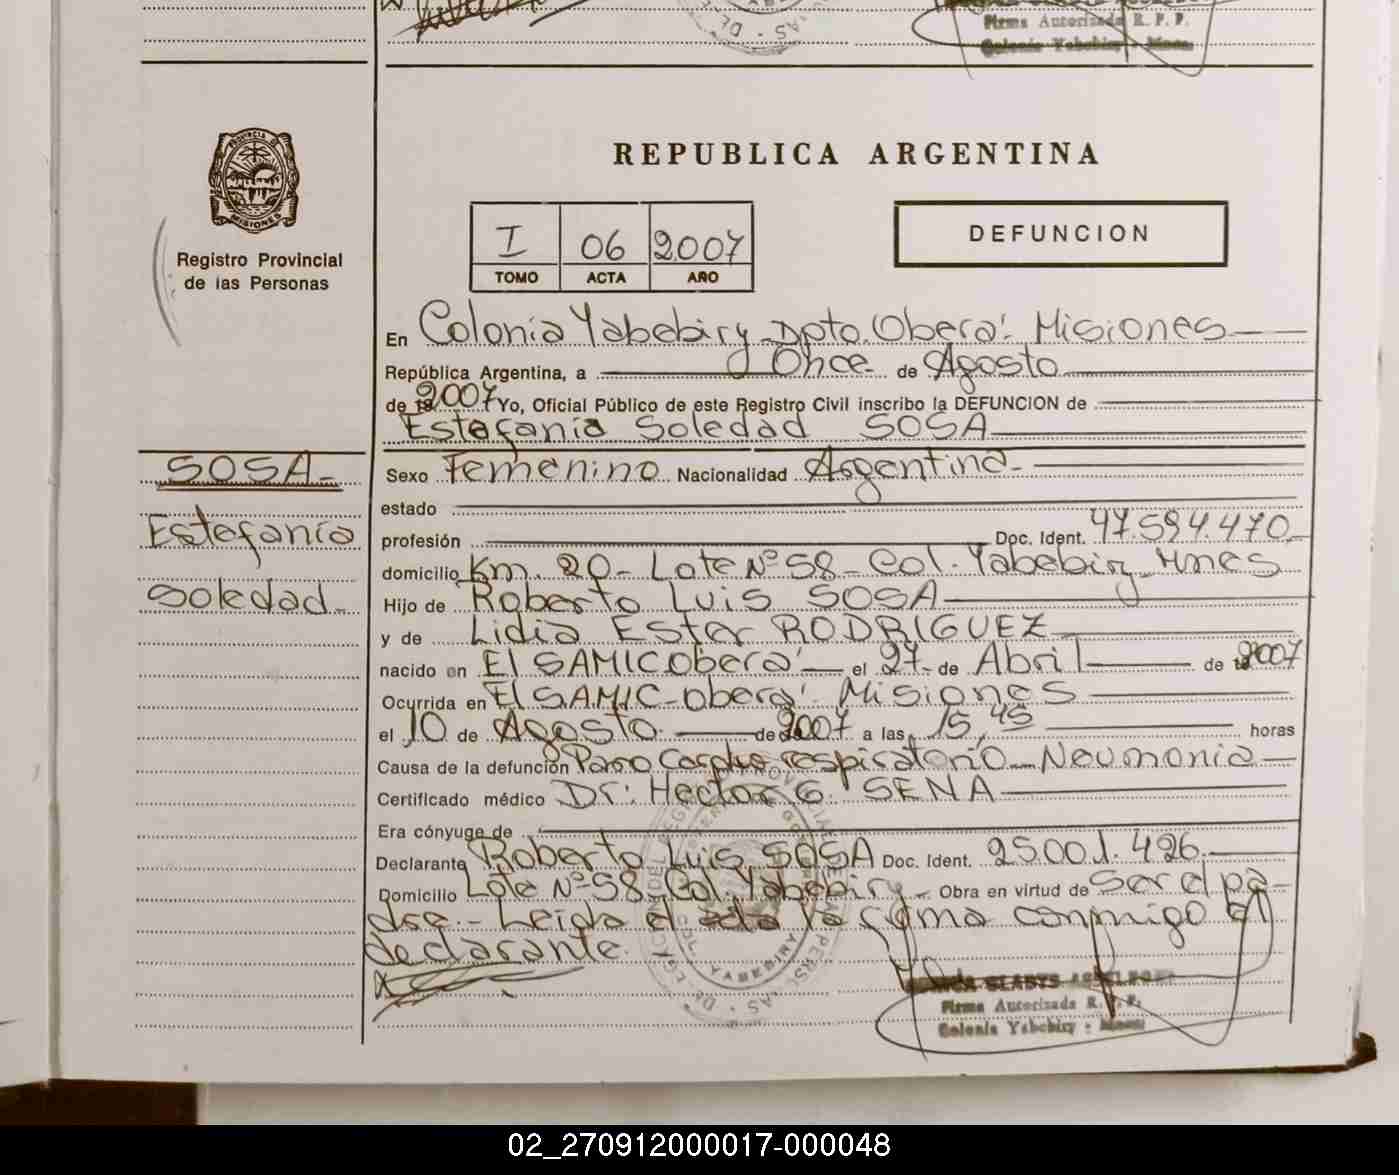 Firma Autorizada R. P. P.
Colonia Yabebiry - Mnes.
PROVINCIA DE
MISIONES
Registro Provincial
de las Personas
REPUBLICA ARGENTINA
I 06 2007
TOMO ACTA AÑO
DEFUNCION
En Colonia Yabebiry Dpto. Oberá - Misiones
República Argentina, a Once de Agosto
de 19 2007 Yo, Oficial Público de este Registro Civil inscribo la DEFUNCION de
Estefanía Soledad SOSA
SOSA
Estefanía
Soledad
Sexo Femenino Nacionalidad Argentina
estado
profesión Doc. Ident. 47.594.470
domicilio Km. 20 - Lote Nº 58 - Col. Yabebiry - Mnes
Hijo de Roberto Luis SOSA
y de Lidia Ester RODRIGUEZ
nacido en El SAMIC Oberá el 27 de Abril de 19 2007
Ocurrida en El SAMIC - Oberá - Misiones
el 10 de Agosto de 2007 a las 15,45 horas
Causa de la defunción Paro Cardio respiratorio - Neumonia
Certificado médico Dr: Hector G. SENA
Era cónyuge de
Declarante Roberto Luis SOSA Doc. Ident. 25.001.426
Domicilio Lote Nº 58 Col. Yabebiry - Obra en virtud de ser el pa-
dre.- Leída el acta la firma conmigo el
declarante.
COL. YABEBIRY
GLADYS
Firma Autorizada R. P. P.
Colonia Yabebiry - Mnes.
02_270912000017-000048